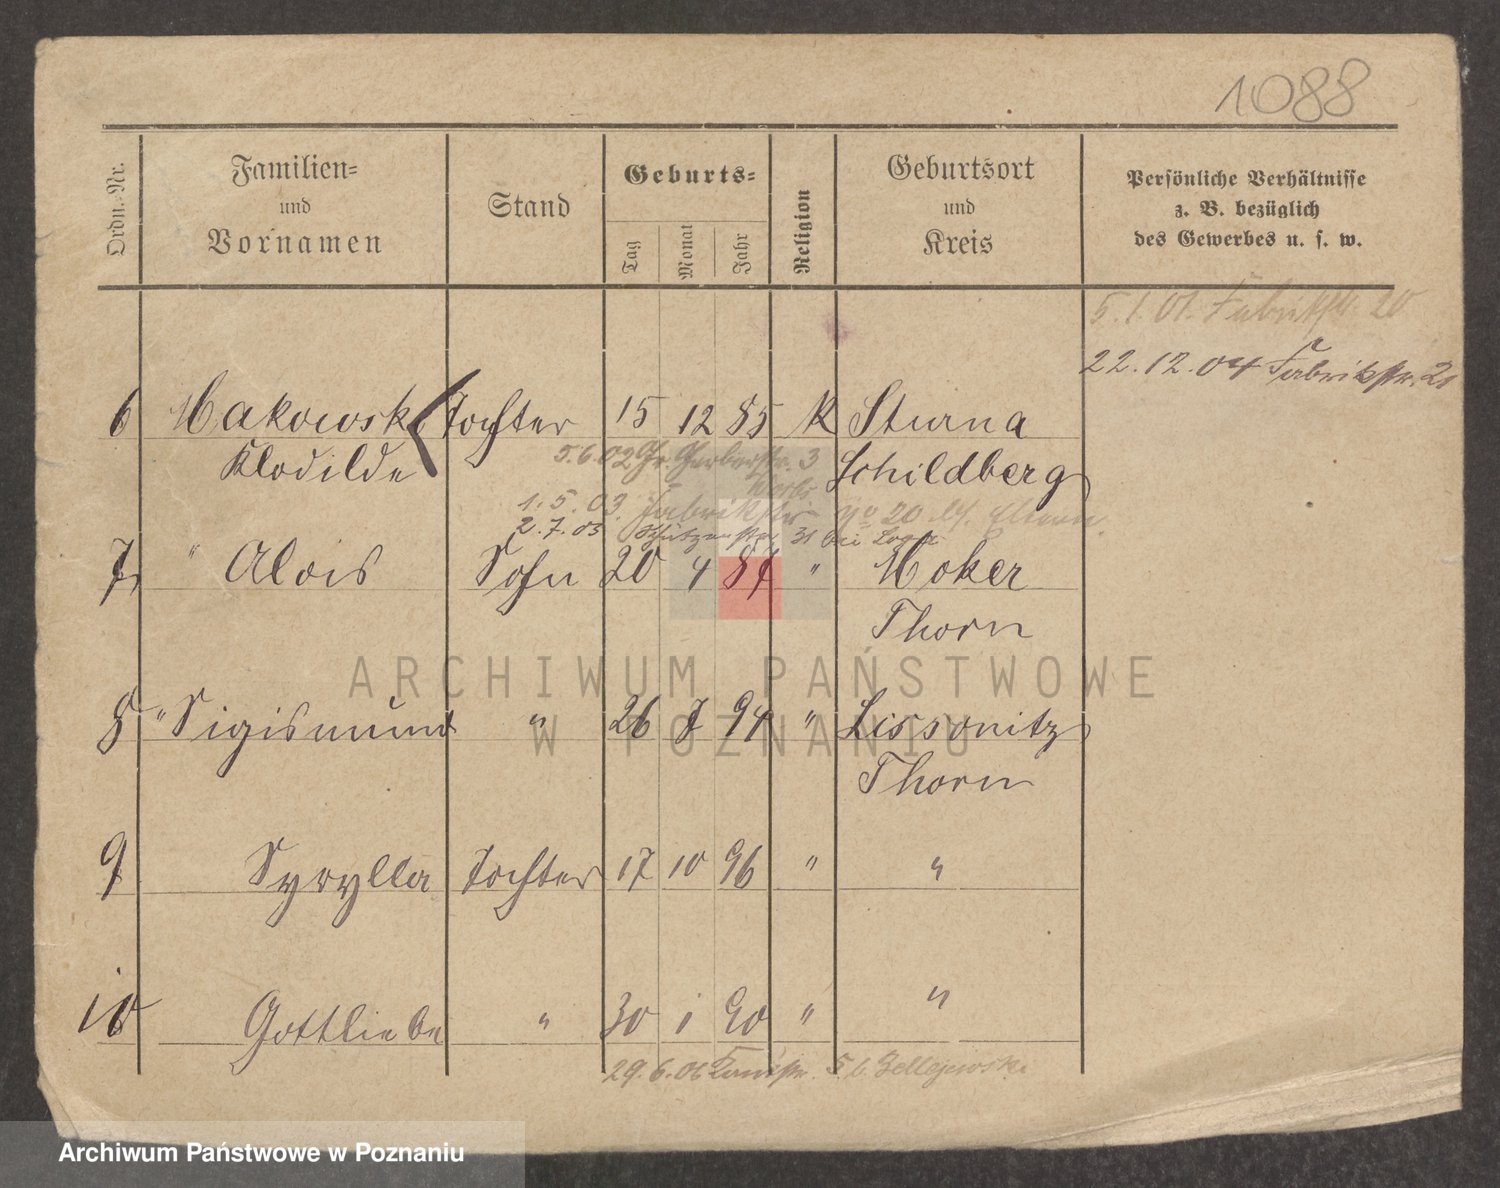 1088
Ordn.-Nr.
Familien-
und
Vornamen
Stand
Geburts-
Tag
Monat
Jahr
Religion
Geburtsort
und
Kreis
Persönliche Verhältnisse
z. B. bezüglich
des Gewerbes u. s. w.
5.1.01. Fabrikstr. 20
22.12.04 Fabrikstr. 21
6 Makowski Tochter 15 12 85 K Sturna
Klodilde Schildberg
5.6.02 Gr. Gerberstr. 3
1.5.03. Fabrikstr. No 20 Eltern
2.7.03 Schützenstr. 31 bei
7, " Alois Sohn 20 4 87 " Moker
Thorn
ARCHIWUM PAŃSTWOWE
W POZNANIU
8 " Sigismund " 26 7 94 " Lissonitz
Thorn
9 Syrylla Tochter 17 10 96 " "
10 Gottliebe " 30 1 90 " "
29.6.06 5 b.
Archiwum Państwowe w Poznaniu